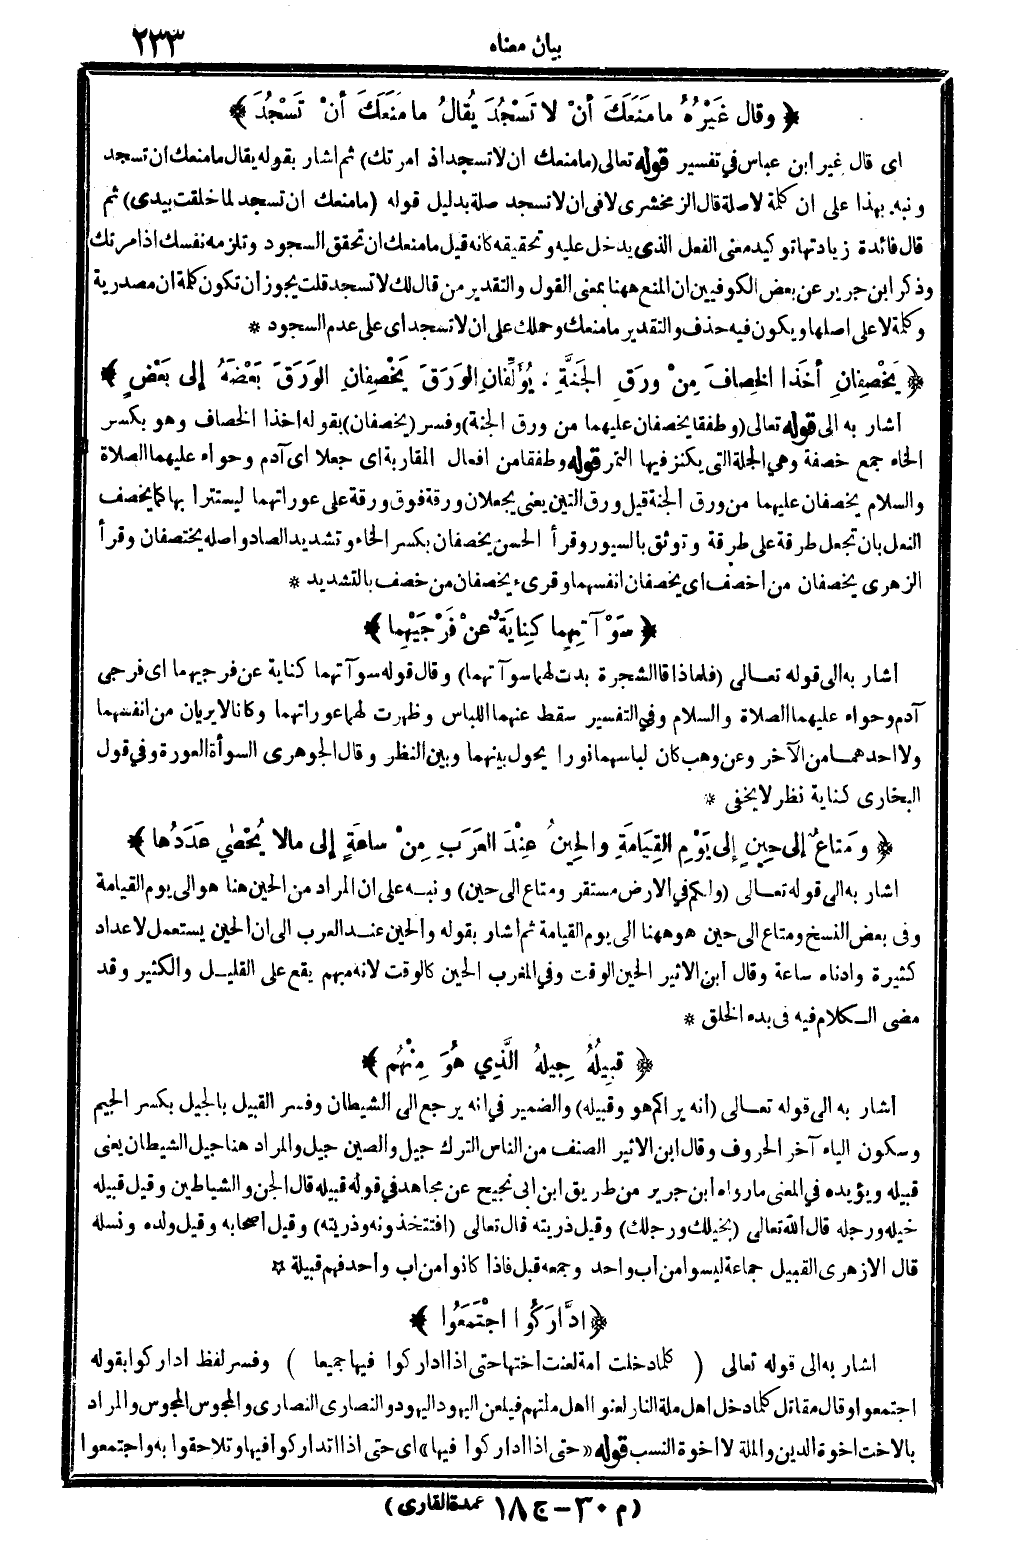 بيان معناه
٢٣٣
﴿ وقال غَيْرُهُ ما مَنَعَكَ أنْ لا تَسْجُدَ يُقالُ ما مَنَعَكَ أنْ تَسْجُدَ ﴾
اى قال غير ابن عباس في تفسير قوله تعالى (ما منعك ان لا تسجد اذ امرتك) ثم اشار بقوله يقال ما منعك ان تسجد
ونبه بهذا على ان كلمة لا صلة قال الزمخشرى لا فى ان لا تسجد صلة بدليل قوله (ما منعك ان تسجد لما خلقت بيدى) ثم
قال فائدة زيادتها توكيد معنى الفعل الذى يدخل عليه وتحقيقه كانه قيل ما منعك ان تحقق السجود وتلزمه نفسك اذ امرتك
وذكر ابن جرير عن بعض الكوفيين ان المنع ههنا بمعنى القول والتقدير من قال لك لا تسجد قلت يجوز أن تكون كلمة ان مصدرية
وكلمة لا على اصلها ويكون فيه حذف والتقدير ما منعك وحملك على ان لا تسجد اى على عدم السجود *
﴿ يَخْصِفانِ أخَذَا الخِصافَ مِنْ ورَقِ الجَنَّةِ . يُؤَلِّفانِ الوَرَقَ يَخْصِفانِ الورَقَ بَعْضَهُ إلى بَعْضٍ ﴾
أشار به الى قوله تعالى (وطفقا يخصفان عليهما من ورق الجنة) وفسر (يخصفان) بقوله اخذا الخصاف وهو بكسر
الخاء جمع خصفة وهي الجلة التى يكنز فيها التمر قوله وطفقا من افعال المقاربة اى جعلا اى آدم وحواء عليهما الصلاة
والسلام يخصفان عليهما من ورق الجنة قيل ورق التين يعنى يجعلان ورقة فوق ورقة على عوراتهما ليستترا بها كما يخصف
النعل بان تجعل طرقة على طرقة وتوثق بالسيور وقرأ الحسن يخصفان بكسر الخاء وتشديد الصاد واصله يختصفان وقرأ
الزهرى يخصفان من اخصف اى يخصفان انفسهما وقرىء يخصفان من خصف بالتشديد *
﴿ سَوْآتِهِما كِنايَةٌ عنْ فَرْجَيْهِما ﴾
أشار به الى قوله تعالى (فلما ذاقا الشجرة بدت لهما سوآتهما) وقال قوله سوآتهما كناية عن فرجيهما اى فرجى
آدم وحواء عليهما الصلاة والسلام وفي التفسير سقط عنهما اللباس وظهرت لهما عوراتهما وكانا لا يريان من انفسهما
ولا احدهما من الآخر وعن وهب كان لباسهما نورا يحول بينهما وبين النظر وقال الجوهرى السوأة العورة وفي قول
البخارى كناية نظر لا يخفى *
﴿ ومَتاعٌ إلى حِينٍ إلى يَوْمِ القِيَامَةِ والحِينُ عِنْدَ العَرَبِ مِنْ ساعَةٍ إلى مالا يُحْصٰي عَدَدُها ﴾
اشار به الى قوله تعالى (ولكم في الارض مستقر ومتاع الى حين) ونبه على ان المراد من الحين هنا هو الى يوم القيامة
وفى بعض النسخ ومتاع الى حين هو ههنا الى يوم القيامة ثم أشار بقوله والحين عند العرب الى ان الحين يستعمل لاعداد
كثيرة وادناه ساعة وقال ابن الاثير الحين الوقت وفي المغرب الحين كالوقت لانه مبهم يقع على القليل والكثير وقد
مضى الكلام فيه فى بدء الخلق *
﴿ قبِيلُهُ جِيلهُ الَّذِي هُوَ مِنْهُم ﴾
أشار به الى قوله تعالى (أنه يراكم هو وقبيله) والضمير في انه يرجع الى الشيطان وفسر القبيل بالجيل بكسر الجيم
وسكون الياء آخر الحروف وقال ابن الاثير الصنف من الناس الترك جيل والصين جيل والمراد هنا جيل الشيطان يعنى
قبيله ويؤيده في المعنى ما رواه ابن جرير من طريق ابن ابى نجيح عن مجاهد في قوله قبيله قال الجن والشياطين وقيل قبيله
خيله ورجله قال الله تعالى (بخيلك ورجلك) وقيل ذريته قال تعالى (افتتخذونه وذريته) وقيل أصحابه وقيل ولده ونسله
قال الازهرى القبيل جماعة ليسوا من أب واحد وجمعه قبل فاذا كانوا من اب واحد فهم قبيلة *
﴿ ادَّارَكُوا اجْتَمَعُوا ﴾
اشار به الى قوله تعالى (كلما دخلت امة لعنت اختها حتى اذا اداركوا فيها جميعا) وفسر لفظ اداركوا بقوله
اجتمعوا وقال مقاتل كلما دخل اهل ملة النار لعنوا اهل ملتهم فيلعن اليهود اليهود والنصارى النصارى والمجوس المجوس والمراد
بالاخت اخوة الدين والملة لا اخوة النسب قوله «حتى اذا اداركوا فيها» اى حتى اذا تداركوا فيها وتلاحقوا به واجتمعوا
(م ٣٠ – ج ١٨ عمدة القارى)